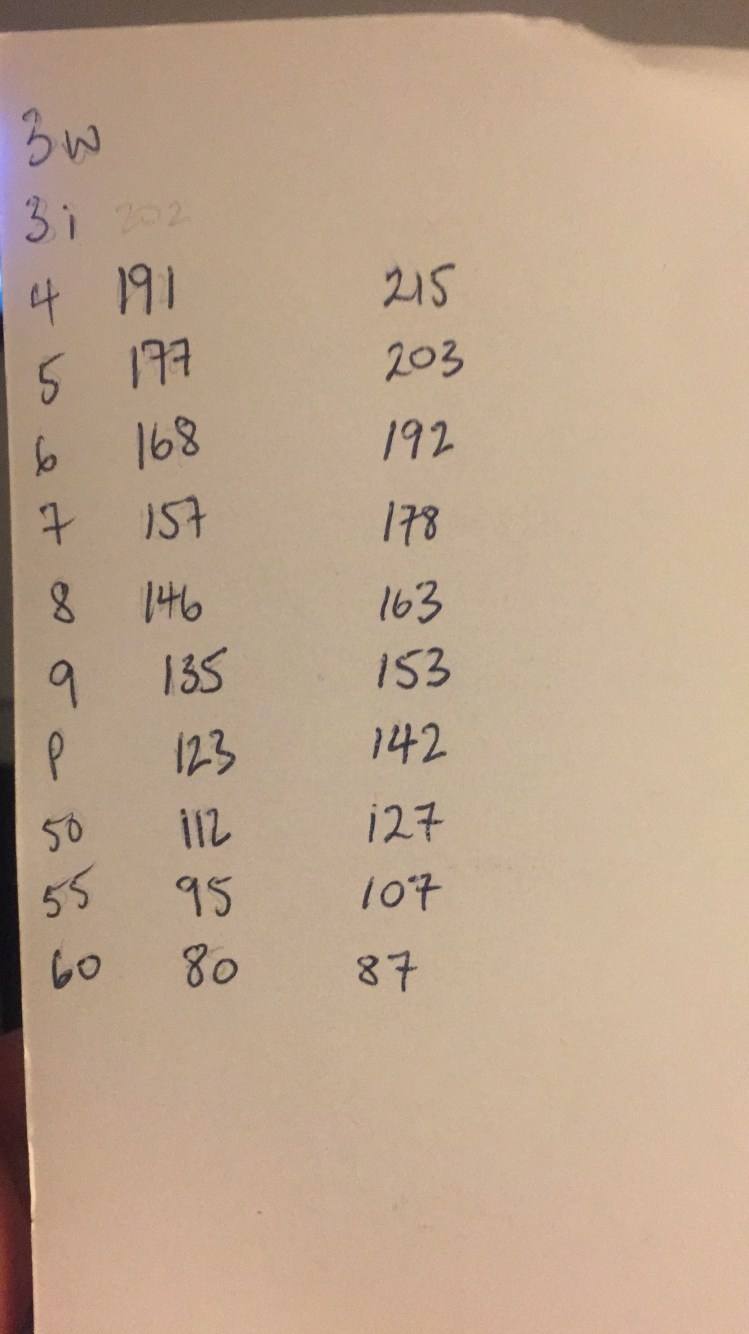 3w
3i 202
4 191 215
5 177 203
6 168 192
7 157 178
8 146 163
9 135 153
P 123 142
50 112 127
55 95 107
60 80 87